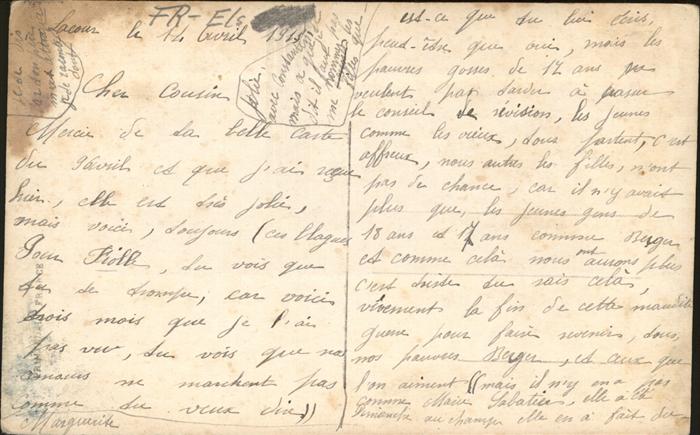 FR-Els
Lacour le 14 Avril 191
Cher Cousin
Mercie de la belle carte
du 9 avril et que j'ai reçue
hier, elle est très jolie,
mais voici, toujours (ces blagues
Pour Riolle, tu vois que
tu te trompe, car voici
trois mois que je l'ai
pas vu, tu vois que nos
amours ne marchent pas
comme tu veux dire))
Marguerite
est-ce que tu lui écris,
peut-être que oui, mais les
pauvres gosses de 17 ans ne
veulent pas tarder à passer
le conseil de révision, les jeunes
comme les vieux, tous partent, c'est
affreux, nous autres les filles, n'ont
pas de chance, car il n'y avait
plus que, les jeunes gens de
18 ans et 17 ans comme Berger
et comme celà nous ont aurons plus
c'est triste tu sais celà,
vivement la fin de cette maudite
guerre pour faire revenir, tous,
nos pauvres Berger, et ceux que
l'on aiment ((mais il n'y en a pas
comme Marie Sabatier, elle a la
au change elle en a fait du
jolie
avec Constantin
mais a
dit il faut
me nommer pas
les
celles que